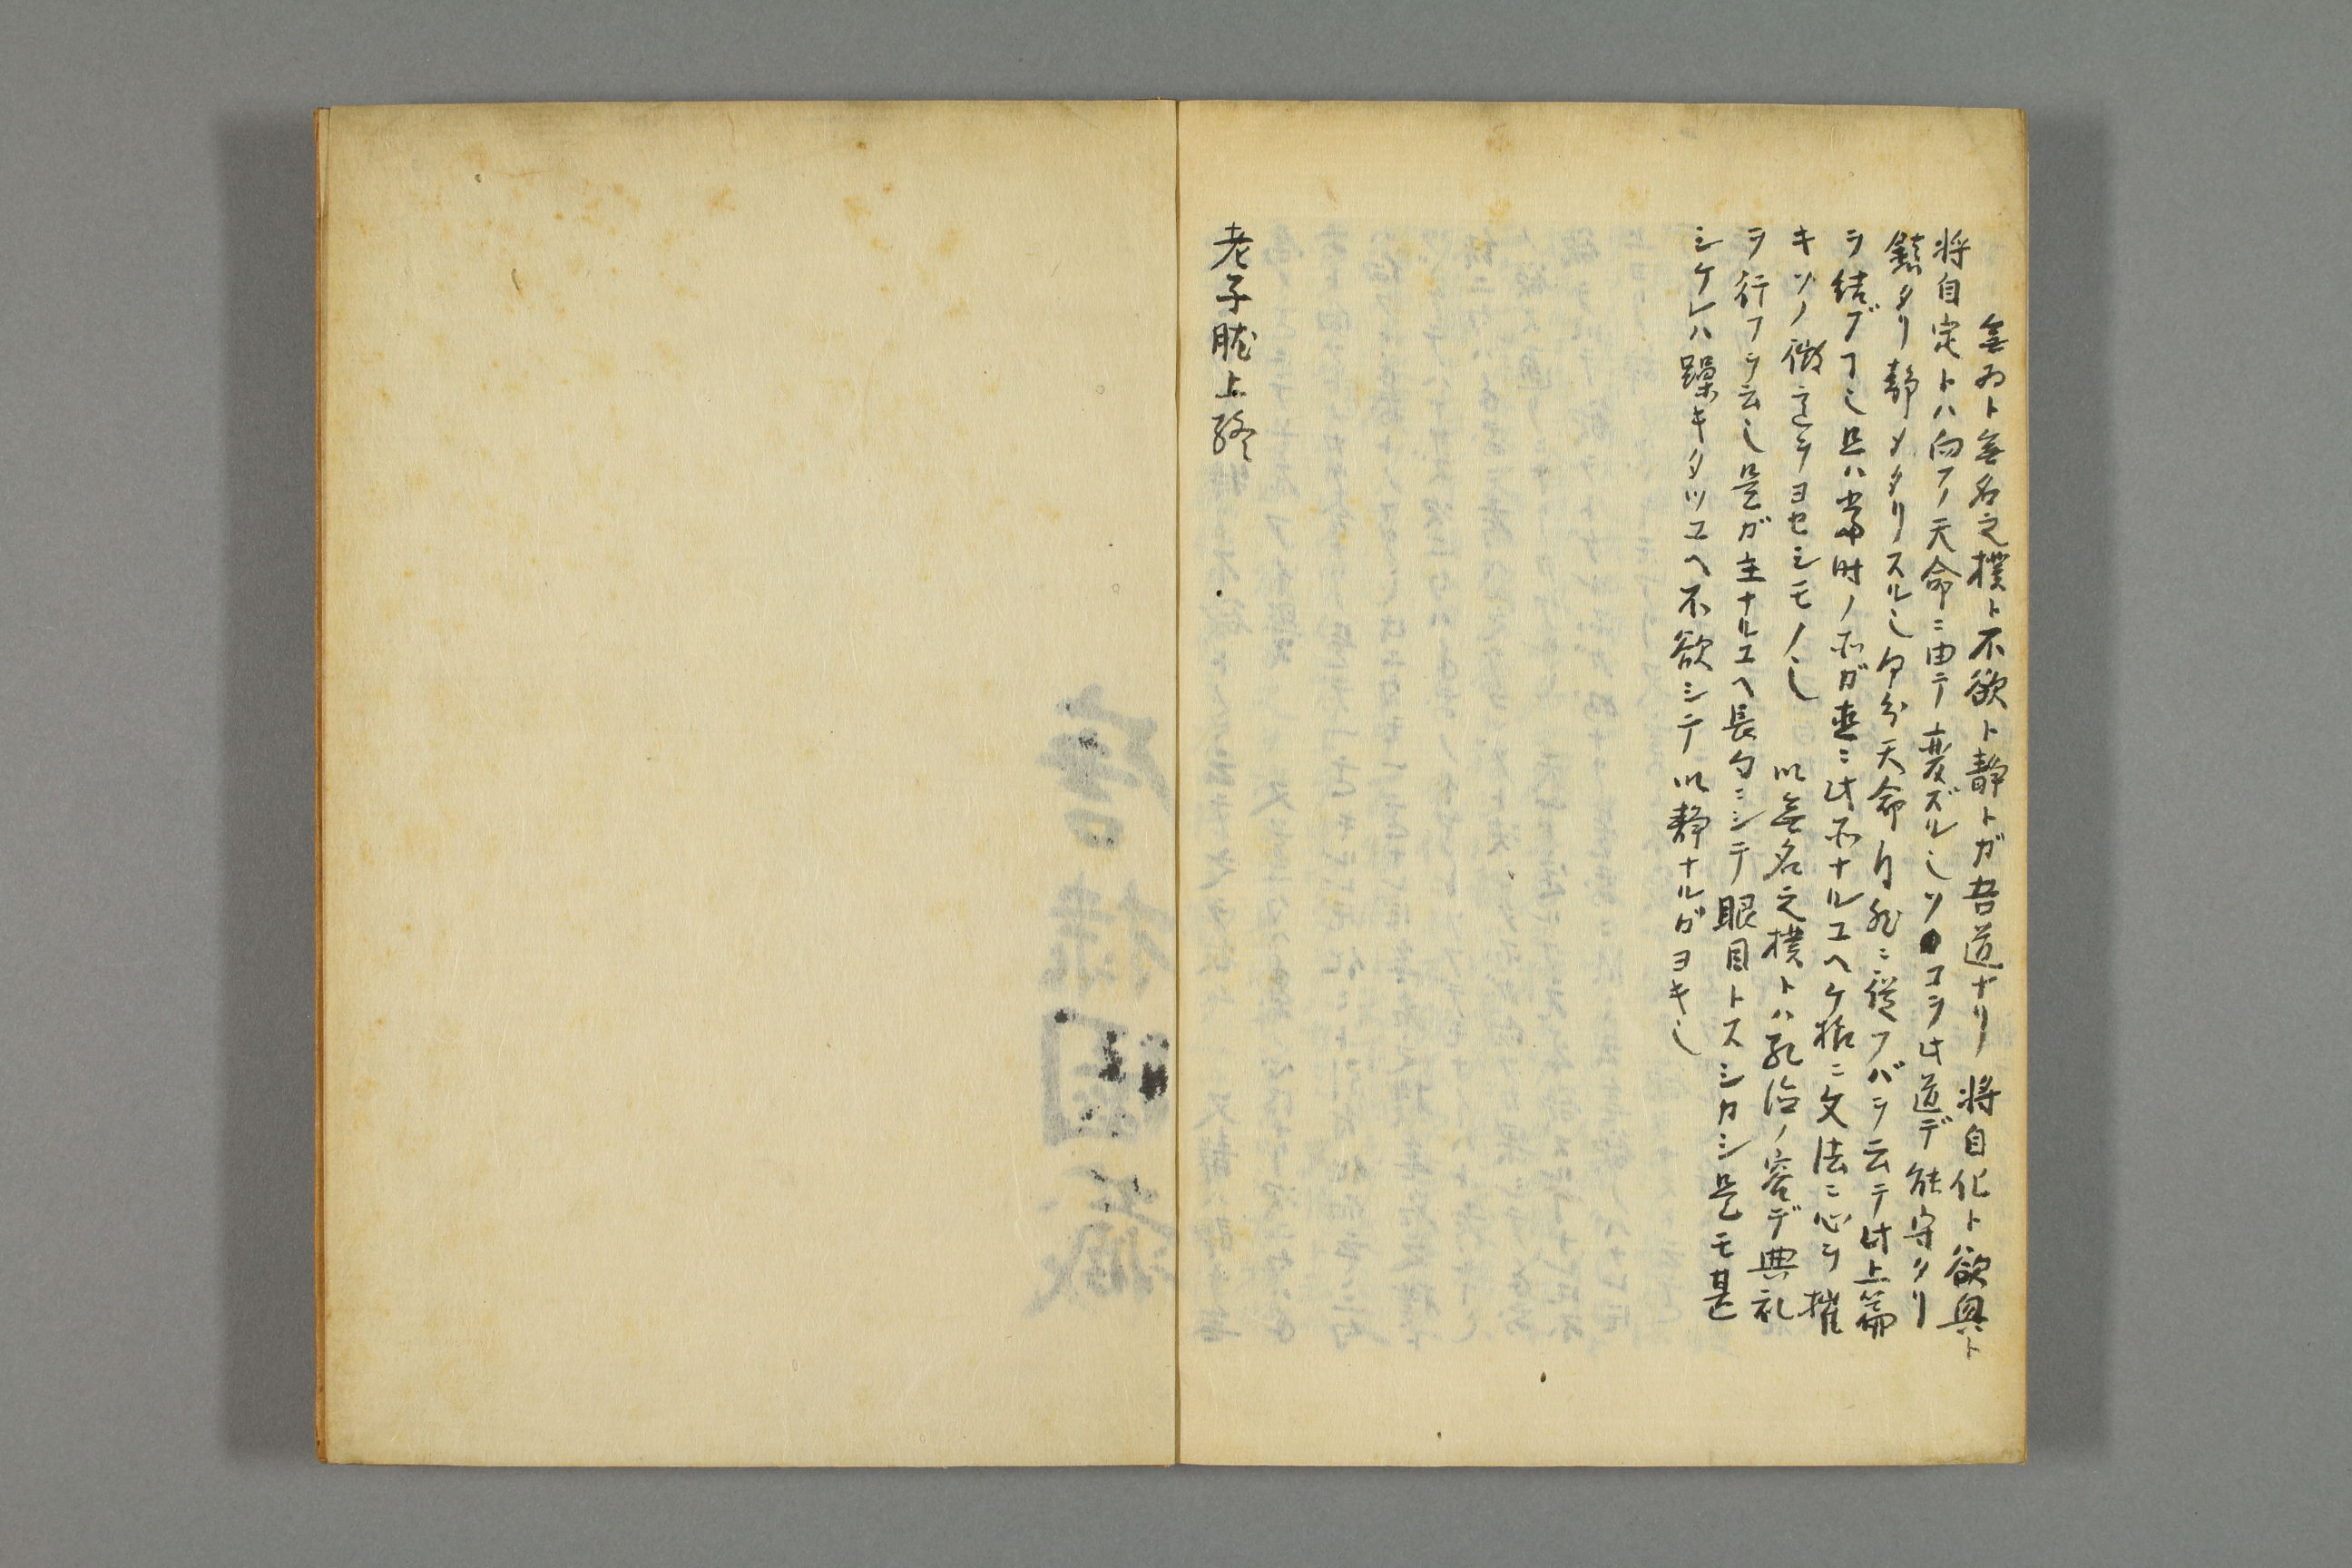 無為ト無名之樸ト不欲ト静トガ吾道ナリ 将自化ト欲興ト
将自定トハ向フノ天命ニ由テ変ズル也ソコヲ此道デ能守タリ
鎮タリ静メタリスル也 天命自然ニ従フバヲ云テ此上篇
ヲ結ブ也是ハ当時ノ ガ ニ此 ナルユヘケ様ニ文法ニ心ヲ摧
キソノ微意ヲヨセシモノ也 以無名之樸トハ乱治ノ容デ典礼
ヲ行フヲ云也是ガ主ナルユヘ長句ニシテ眼目トスシカシ是モ甚
シケレハ躁キタツユヘ不欲シテ以静ナルガヨキ也
老子 上終